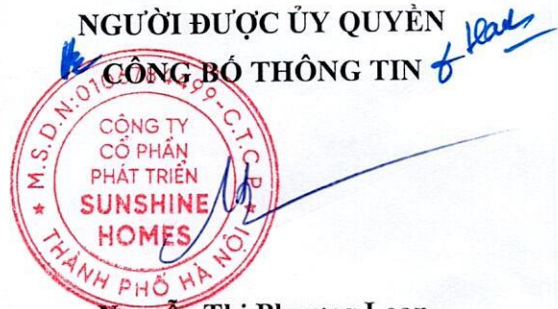 NGƯỜI ĐƯỢC ỦY QUYỀN
CÔNG BỐ THÔNG TIN
M.S.D.N: -C.T.C.P
CÔNG TY
CỔ PHẦN
PHÁT TRIỂN
SUNSHINE
HOMES
THÀNH PHỐ HÀ NỘI
Thị Phương Loan